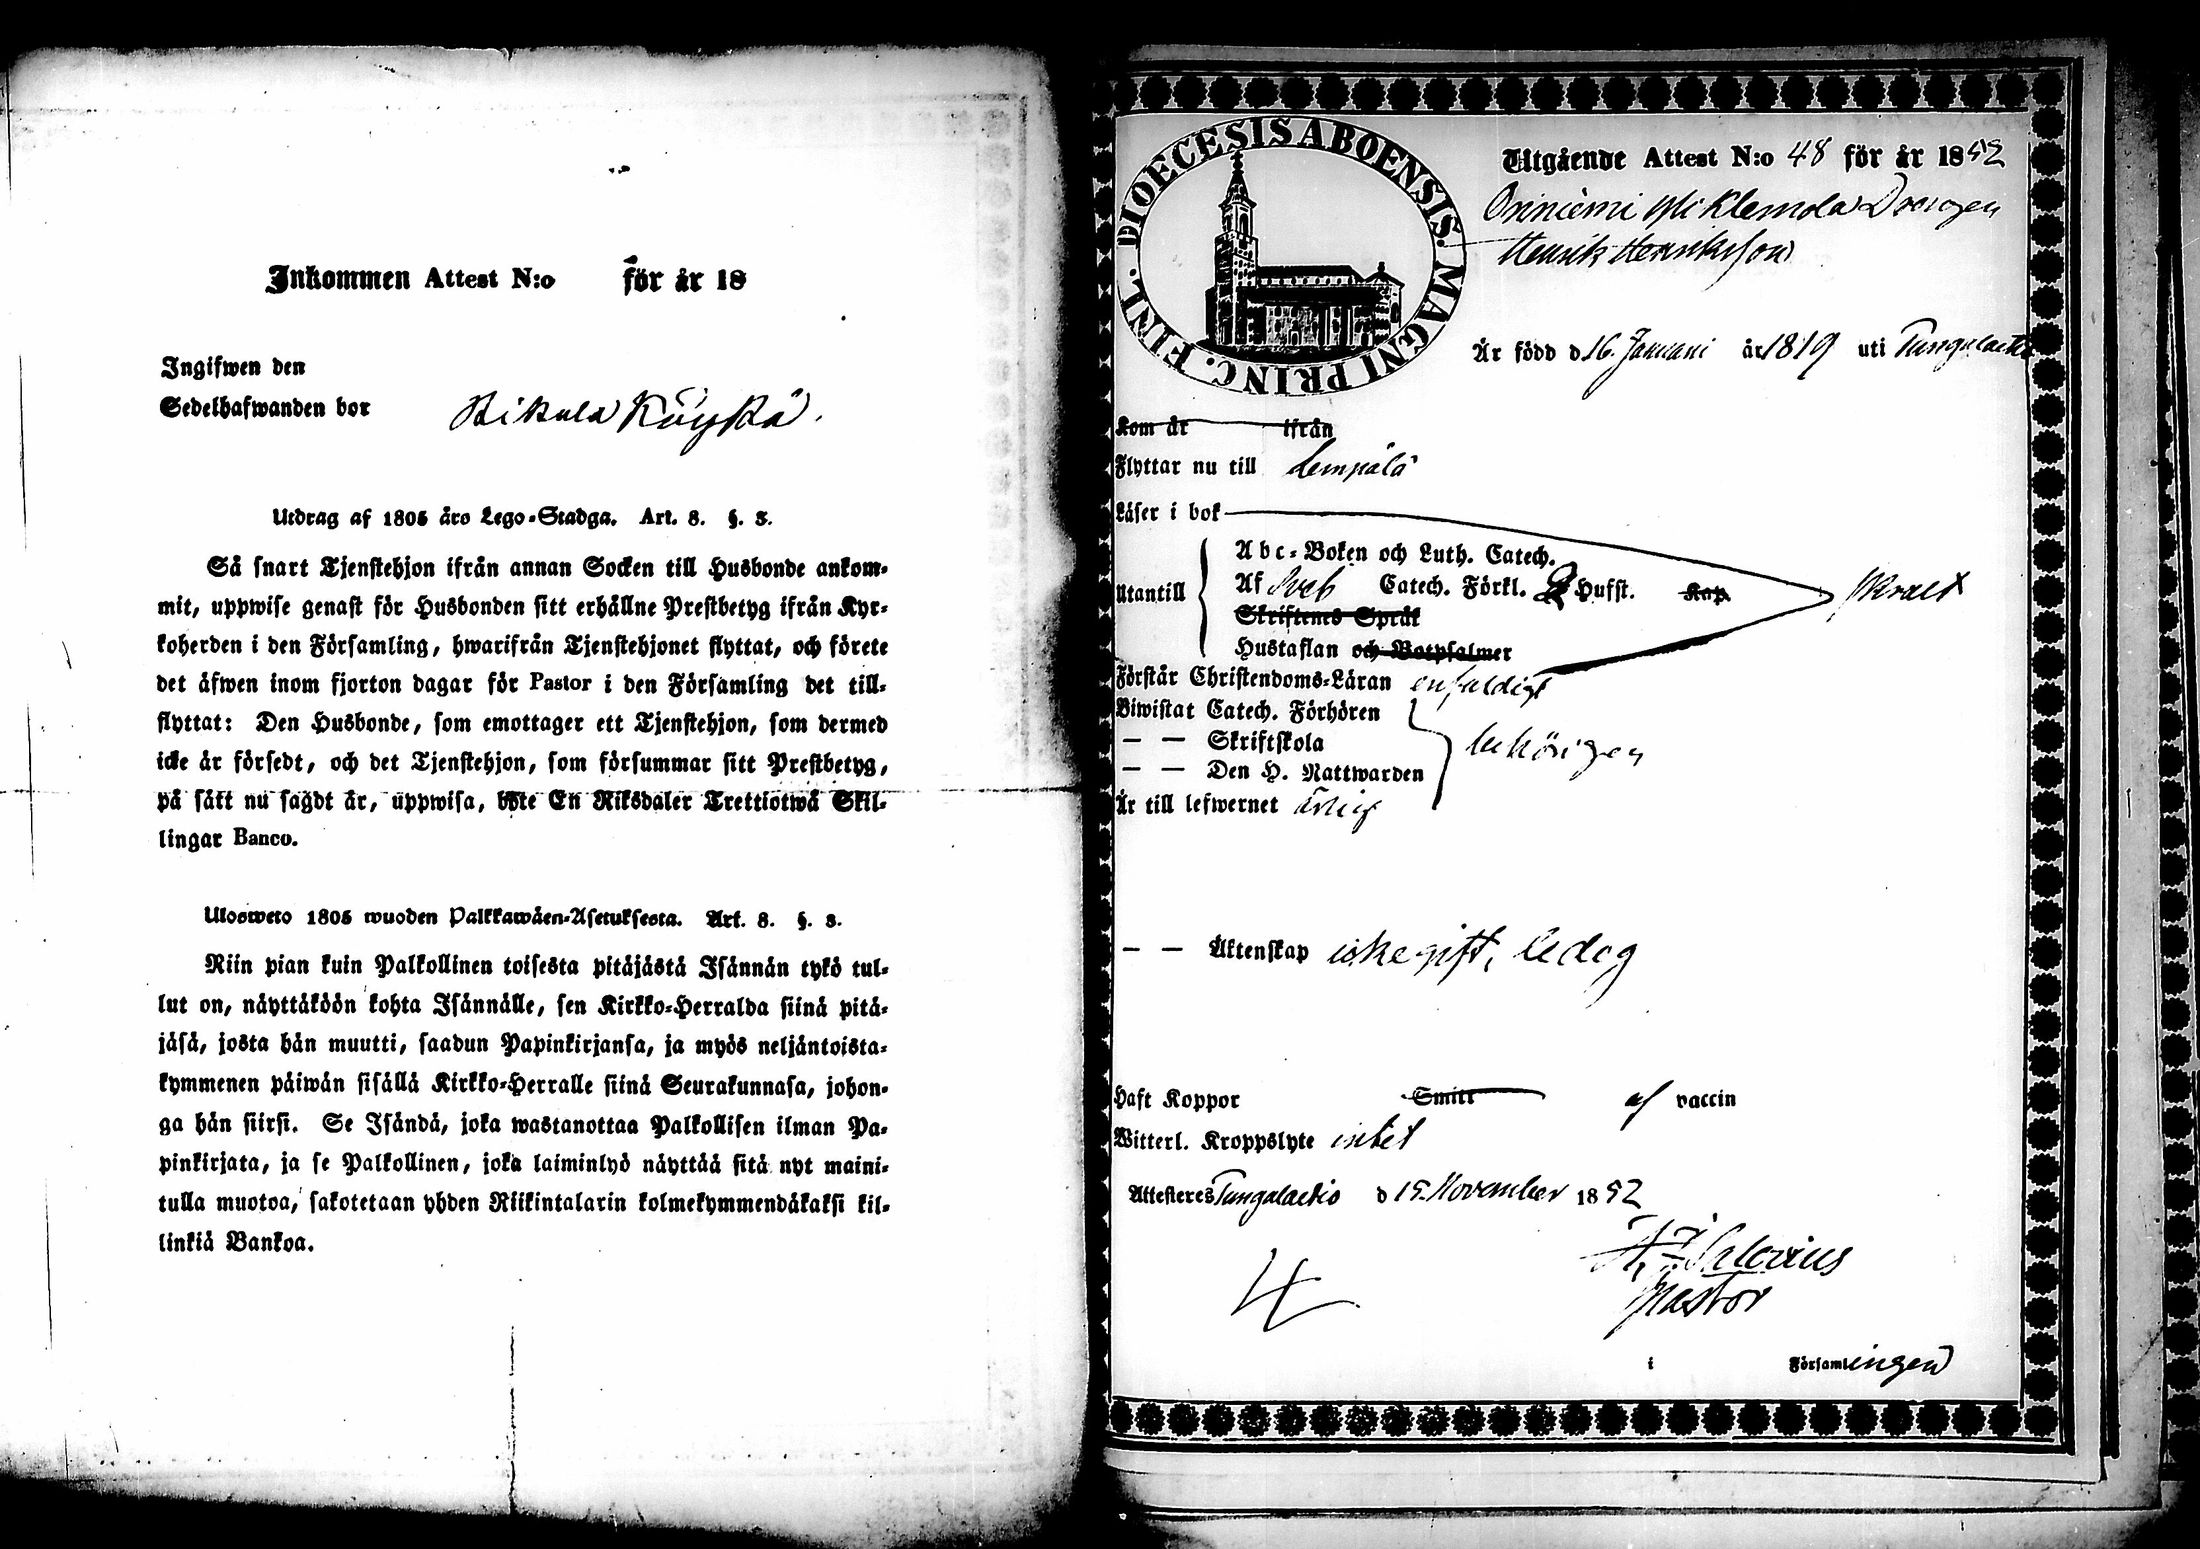 Inkommen Attest N:o för år 18
Ingifwen den
Sedelhafwanden bor Sikula Köykä.
Utdrag af 1805 års Lego-Stadga. Art. 8. §. 3.
Så snart Tjenstehjon ifrån annan Socken till Husbonde ankom-
mit, uppwise genast för Husbonden sitt erhållne Prestbetyg ifrån Kyr-
koherden i den Församling, hwarifrån Tjenstehjonet flyttat, och förete
det äfwen inom fjorton dagar för Pastor i den Församling det till-
flyttat: Den Husbonde, som emottager ett Tjenstehjon, som dermed
icke är försedt, och det Tjenstehjon, som försummar sitt Prestbetyg,
på sätt nu sagdt är, uppwisa, böte En Riksdaler Trettiotwå Skil-
lingar Banco.
Ulosweto 1805 wuoden Palkkawäen-Asetuksesta. Art. 8. §. 3.
Niin pian kuin Palkollinen toisesta pitäjästä Isännän tykö tul-
lut on, näyttäköön kohta Isännälle, sen Kirkko-Herralda siinä pitä-
jäsä, josta hän muutti, saadun Papinkirjansa, ja myös neljäntoista-
kymmenen päiwän sisällä Kirkko-Herralle siinä Seurakunnasa, johon-
ga hän siirsi. Se Isändä, joka wastanottaa Palkollisen ilman Pa-
pinkirjata, ja se Palkollinen, joka laiminlyö näyttää sitä nyt maini-
tulla muotoa, sakotetaan yhden Riikintalarin kolmekymmendäkaksi kil-
linkiä Bankoa.
DIOECESIS ABOENSIS. MAGNI PRINC. FINL.
Utgående Attest N:o 48 för år 1852
Klemola Drengen
Henrik Henriksson
Är född d 16. Januari år 1819 uti Tungelaetio
Kom år ifrån
Flyttar nu till Lempälä
Läser i bok
Utantill
Abc-Boken och Luth. Catech.
Af Sveb Catech. Förkl. 2 Hufst. Kap.
Skriftenes Språk
Hustaflan och Botpsalmer
Förstår Christendoms-Läran enfaldigt
Biwistat Catech. Förhören
— — Skriftskola
— — Den H. Nattwarden
behörigen
Är till lefwernet ärlig
— — Äktenskap icke gift, ledog
Haft Koppor Smitt af vaccin
Witterl. Kroppslyte intet
Attesteres Tungalaetio d 15. November 1852
Salovius
Pastor
i Församlingen